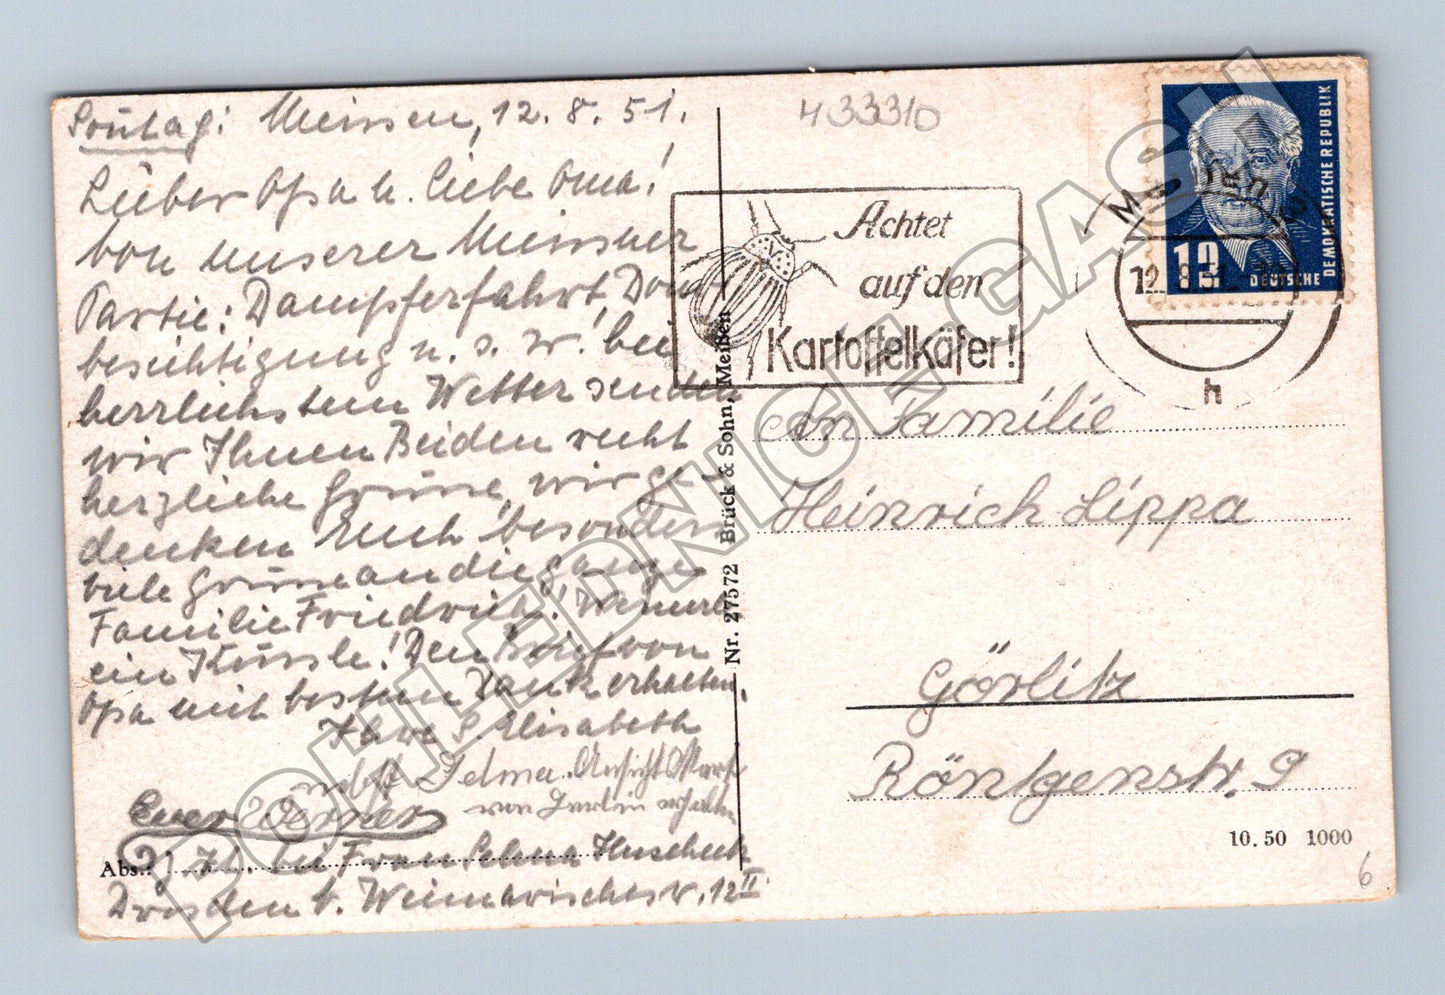 Sonntag: Meissen, 12. 8. 51.
Lieber Opa u. liebe Oma!
Von unserer Meissner
Partie: Dampferfahrt, Dom
besichtigung u. s. w. bei
herrlichstem Wetter senden
wir Ihnen Beiden recht
herzliche Grüsse, wir ge-
denken Euch besonders
viele Grüsse an die ganze
Familie Friedrich!
ein Küssle! Den Brief von
Opa mit bestem Dank erhalten,
Ihre S. Elisabeth
nebst Selma. Ansicht
von erhalten
Euer Werner
Abs.: bei Frau Selma
Dresden Weimarischestr. 12 II
Nr. 27572 Brück & Sohn, Meißen
433310
Achtet
auf den
Kartoffelkäfer!
12. 8. 51
h
12
DEUTSCHE
DEMOKRATISCHE REPUBLIK
An Familie
Heinrich Lippa
Görlitz
Röntgenstr. 9
10. 50 1000
6
POHLEDNICE GASH